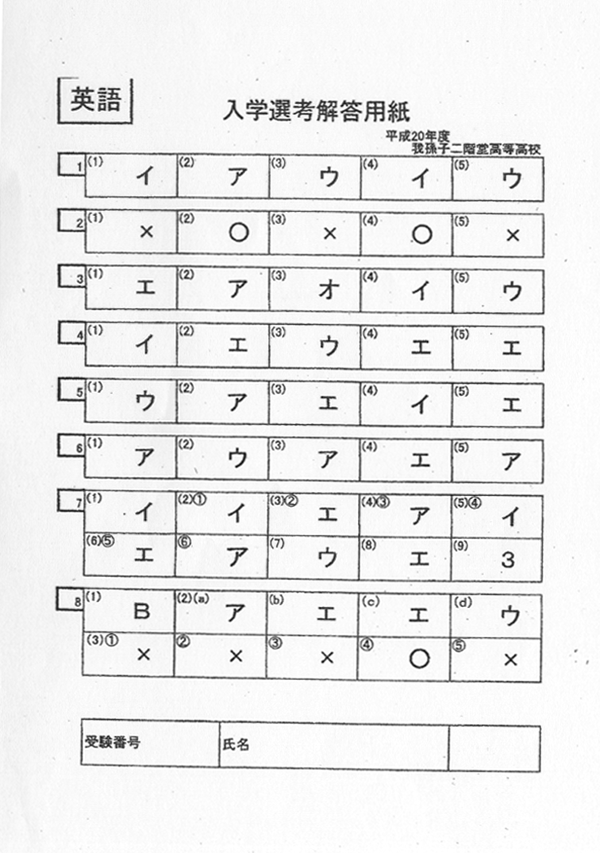 英語
入学選考解答用紙
平成20年度
我孫子二階堂高等高校
1 (1) イ (2) ア (3) ウ (4) イ (5) ウ
2 (1) × (2) ○ (3) × (4) ○ (5) ×
3 (1) エ (2) ア (3) オ (4) イ (5) ウ
4 (1) イ (2) エ (3) ウ (4) エ (5) エ
5 (1) ウ (2) ア (3) エ (4) イ (5) エ
6 (1) ア (2) ウ (3) ア (4) エ (5) ア
7 (1) イ (2)① イ (3)② エ (4)③ ア (5)④ イ
(6)⑤ エ ⑥ ア (7) ウ (8) エ (9) 3
8 (1) B (2)(a) ア (b) エ (c) エ (d) ウ
(3)① × ② × ③ × ④ ○ ⑤ ×
受験番号 氏名